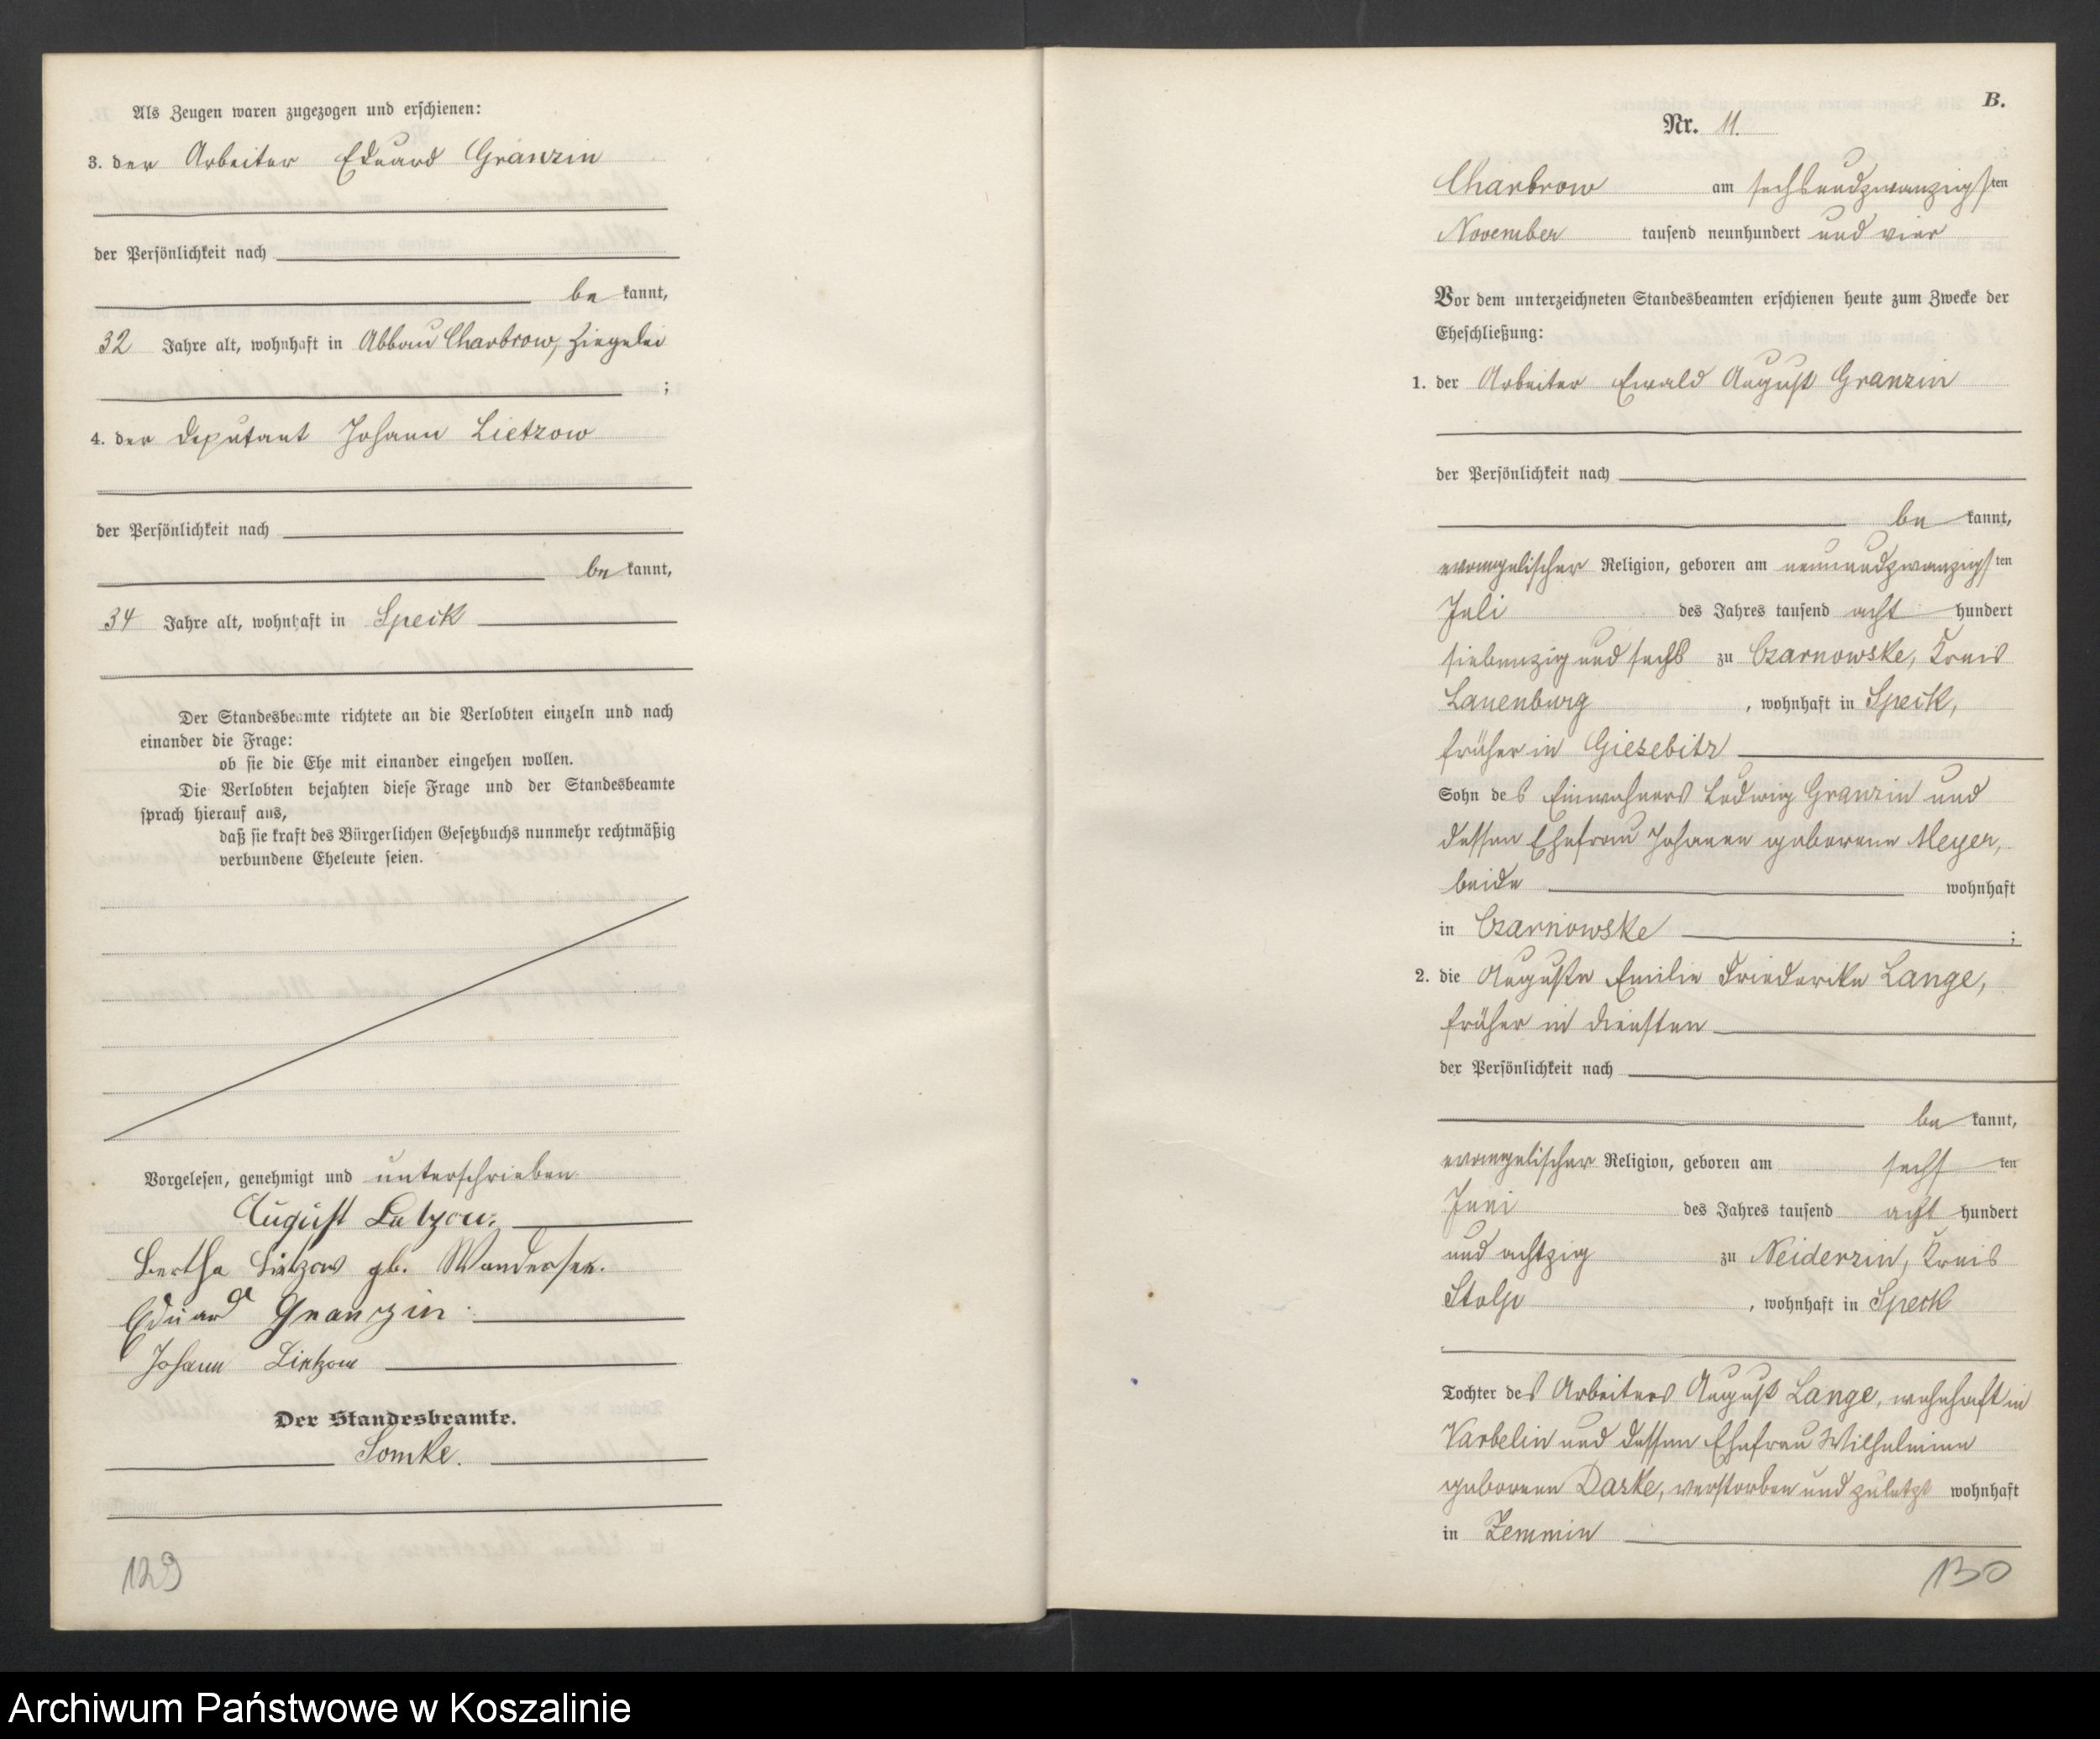 Als Zeugen waren zugezogen und erschienen:
3. der Arbeiter Eduard Granzin
der Persönlichkeit nach
be kannt,
32 Jahre alt, wohnhaft in Abbau Charbrow, Ziegelei
;
4. der Deputant Johann Lietzow
der Persönlichkeit nach
be kannt,
34 Jahre alt, wohnhaft in Speck
Der Standesbeamte richtete an die Verlobten einzeln und nach
einander die Frage:
ob sie die Ehe mit einander eingehen wollen.
Die Verlobten bejahten diese Frage und der Standesbeamte
sprach hierauf aus,
daß sie kraft des Bürgerlichen Gesetzbuchs nunmehr rechtmäßig
verbundene Eheleute seien.
Vorgelesen, genehmigt und unterschrieben
August
Bertha Lietzow gb.
Eduard Granzin
Johann Lietzow
Der Standesbeamte.
Somke.
129
B.
Nr. 11.
Charbrow am sechsundzwanzigsten
November tausend neunhundert und vier
Vor dem unterzeichneten Standesbeamten erschienen heute zum Zwecke der
Eheschließung:
1. der Arbeiter Ewald August Granzin
der Persönlichkeit nach
be kannt,
evangelischer Religion, geboren am neunundzwanzigsten
Juli des Jahres tausend acht hundert
siebenzig und sechs zu Czarnowske, Kreis
Lauenburg , wohnhaft in Speck,
früher in Giesebitz
Sohn des Einwohners Ludwig Granzin und
dessen Ehefrau Johanne geborene Meyer,
beide wohnhaft
in Czarnowske ;
2. die Auguste Emilie Friederike Lange,
früher in Diensten
der Persönlichkeit nach
be kannt,
evangelischer Religion, geboren am sechsten
Juni des Jahres tausend acht hundert
und achtzig zu Neiderzin, Kreis
Stolp , wohnhaft in Speck
Tochter des Arbeiters August Lange, wohnhaft in
Varbelin und dessen Ehefrau Wilhelmine
geborene Darke, verstorben und zuletzt wohnhaft
in Zemmin
130
Archiwum Państwowe w Koszalinie